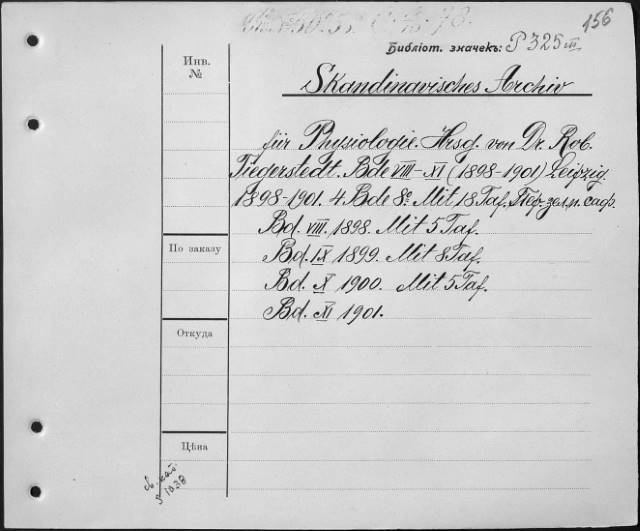 156
Библіот. значекъ: P 325 III
Инв. №
Skandinavisches Archiv
für Physiologie. Hrsg. von Dr. Rob.
Tiegerstedt. Bde VIII-XI (1898-1901) Leipzig
1898-1901. 4 Bde 8° Mit 18 Taf. Пер. зел. п. саф.
Bd. VIII. 1898. Mit 5 Taf.
Bd. IX 1899. Mit 8 Taf.
Bd. X 1900. Mit 5 Taf.
Bd. XI 1901.
По заказу
Откуда
Цѣна
1038